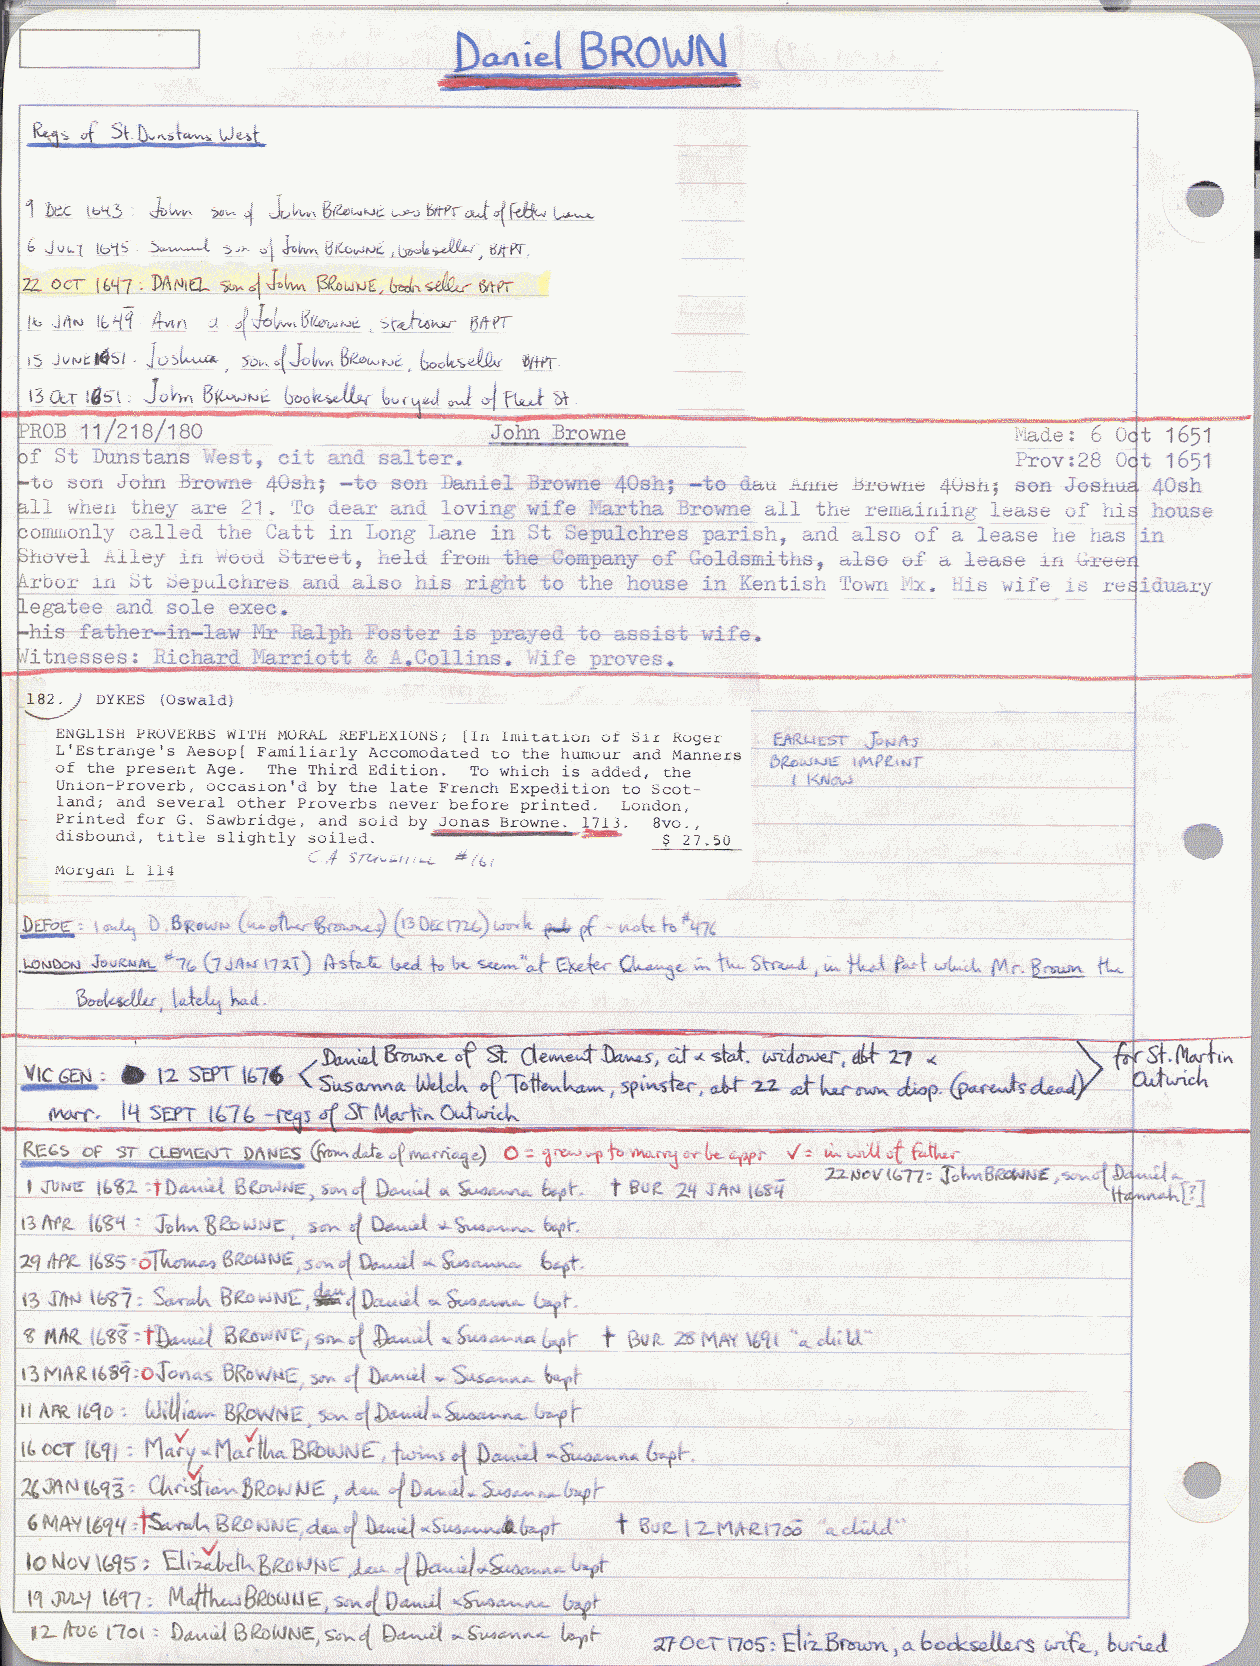 Daniel BROWN
Regs of St. Dunstans West
9 DEC 1643: John son of John BROWNE was BAPT out of Fetter Lane
6 JULY 1645 Samuel son of John BROWNE, bookseller, BAPT.
22 OCT 1647: DANIEL son of John BROWNE, bookseller BAPT
16 JAN 1649 Ann d of John BROWNE, stationer BAPT
15 JUNE 1651. Joshua, son of John BROWNE, bookseller BAPT.
13 OCT 1651. John BROWNE bookseller buryed out of Fleet St
PROB 11/218/180 John Browne Made: 6 Oct 1651
of St Dunstans West, cit and salter. Prov:28 Oct 1651
-to son John Browne 40sh; -to son Daniel Browne 40sh; -to dau Anne Browne 40sh; son Joshua 40sh
all when they are 21. To dear and loving wife Martha Browne all the remaining lease of his house
commonly called the Catt in Long Lane in St Sepulchres parish, and also of a lease he has in
Shovel Alley in Wood Street, held from the Company of Goldsmiths, also of a lease in Green
Arbor in St Sepulchres and also his right to the house in Kentish Town Mx. His wife is residuary
legatee and sole exec.
-his father-in-law Mr Ralph Foster is prayed to assist wife.
Witnesses: Richard Marriott & A.Collins. Wife proves.
182. DYKES (Oswald)
ENGLISH PROVERBS WITH MORAL REFLEXIONS; [In Imitation of Sir Roger
L'Estrange's Aesop[ Familiarly Accomodated to the humour and Manners
of the present Age. The Third Edition. To which is added, the
Union-Proverb, occasion'd by the late French Expedition to Scot-
land; and several other Proverbs never before printed. London,
Printed for G. Sawbridge, and sold by Jonas Browne. 1713. 8vo.,
disbound, title slightly soiled. $ 27.50
C A STONEHILL #161
Morgan L 114
EARLIEST JONAS
BROWNE IMPRINT
I KNOW
DEFOE: 1 only D. BROWN (no other Brownes) (13 DEC 1726) work pf - note to #476
LONDON JOURNAL #76 (7 JAN 1721) A state bed to be seem "at Exeter Change in the Strand, in that Part which Mr. Brown the
Bookseller, lately had.
VIC GEN: 12 SEPT 1676 Daniel Browne of St Clement Danes, cit & stat. widower, abt 27 &
Susanna Welch of Tottenham, spinster, abt 22 at her own disp. (parents dead) for St. Martin Outwich
marr. 14 SEPT 1676 - regs of St Martin Outwich
REGS OF ST CLEMENT DANES (from date of marriage) O = grew up to marry or be appr ✓ = in will of father
22 NOV 1677: John BROWNE, son of Daniel & Hannah [?]
1 JUNE 1682: † Daniel BROWNE, son of Daniel & Susanna bapt. † BUR 24 JAN 1684
13 APR 1684: John BROWNE, son of Daniel & Susanna bapt.
29 APR 1685: O Thomas BROWNE, son of Daniel & Susanna bapt.
13 JAN 1687: Sarah BROWNE, of Daniel & Susanna bapt.
8 MAR 1688: † Daniel BROWNE, son of Daniel & Susanna bapt † BUR 28 MAY 1691 "a child"
13 MAR 1689: O Jonas BROWNE, son of Daniel & Susanna bapt
11 APR 1690: William BROWNE, son of Daniel & Susanna bapt
16 OCT 1691: Mary & Martha BROWNE, twins of Daniel & Susanna bapt.
26 JAN 1693: Christian BROWNE, dau of Daniel & Susanna bapt
6 MAY 1694: † Sarah BROWNE, dau of Daniel & Susanna bapt † BUR 12 MAR 1700 "a child"
10 NOV 1695: Elizabeth BROWNE dau of Daniel & Susanna bapt
19 JULY 1697: Matthew BROWNE, son of Daniel & Susanna bapt
12 AUG 1701: Daniel BROWNE, son of Daniel & Susanna bapt
27 OCT 1705: Eliz Brown, a booksellers wife, buried